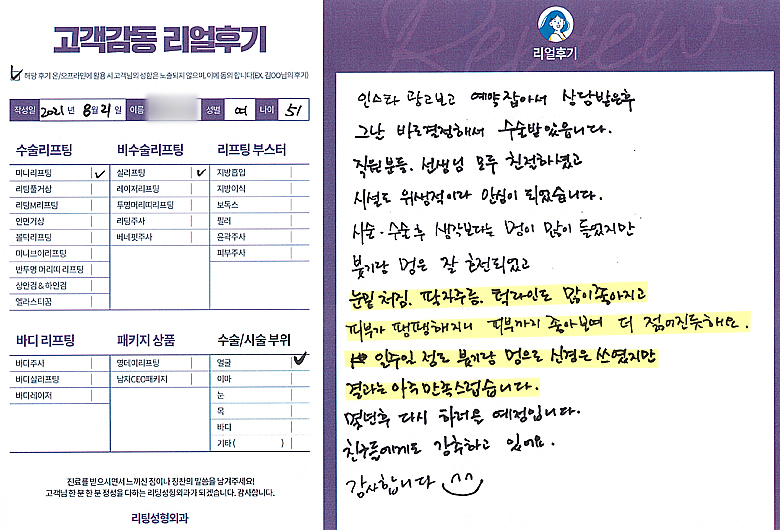 고객감동 리얼후기
해당 후기 온/오프라인에 활용 시 고객님의 성함은 노출되지 않으며, 이에 동의 합니다(EX. 김OO님의 후기)
작성일 2021 년 8 월 21 일 이름 성별 여 나이 51
수술리프팅 비수술리프팅 리프팅 부스터
미니리프팅 ✓ 실리프팅 ✓ 지방흡입
리팅풀거상 레이저리프팅 지방이식
리팅M리프팅 투명머리띠리프팅 보톡스
안면거상 리팅주사 필러
볼닥리프팅 베네핏주사 윤곽주사
미니브이리프팅 피부주사
반투명 머리띠 리프팅
상안검 & 하안검
엘라스티꿈
바디 리프팅 패키지 상품 수술/시술 부위
바디주사 영데이리프팅 얼굴 ✓
바디실리프팅 남자CEO패키지 이마
바디레이저 눈
목
바디
기타( )
진료를 받으시면서 느끼신 점이나 칭찬의 말씀을 남겨주세요!
고객님 한 분 한 분 정성을 다하는 리팅성형외과가 되겠습니다. 감사합니다.
리팅성형외과
Review
리얼후기
인스타 광고보고 예약잡아서 상담받은후
그날 바로결정해서 수술받았읍니다.
직원분들. 선생님 모두 친절하셨고
시설도 위생적이라 안심이 되었습니다.
시술·수술후 생각보다는 멍이 많이 들었지만
붓기랑 멍은 잘 호전되었고
눈밑처짐. 팔자주름. 턱라인도 많이좋아지고
피부가 땡땡해지니 피부까지 좋아보여 더 젊어진듯해요.
일주일 정도 붓기랑 멍으로 신경은 쓰였지만
결과는 아주만족스럽습니다.
몇년후 다시 하러올 예정입니다.
친구들에게도 강추하고 있어요.
감사합니다 ^^